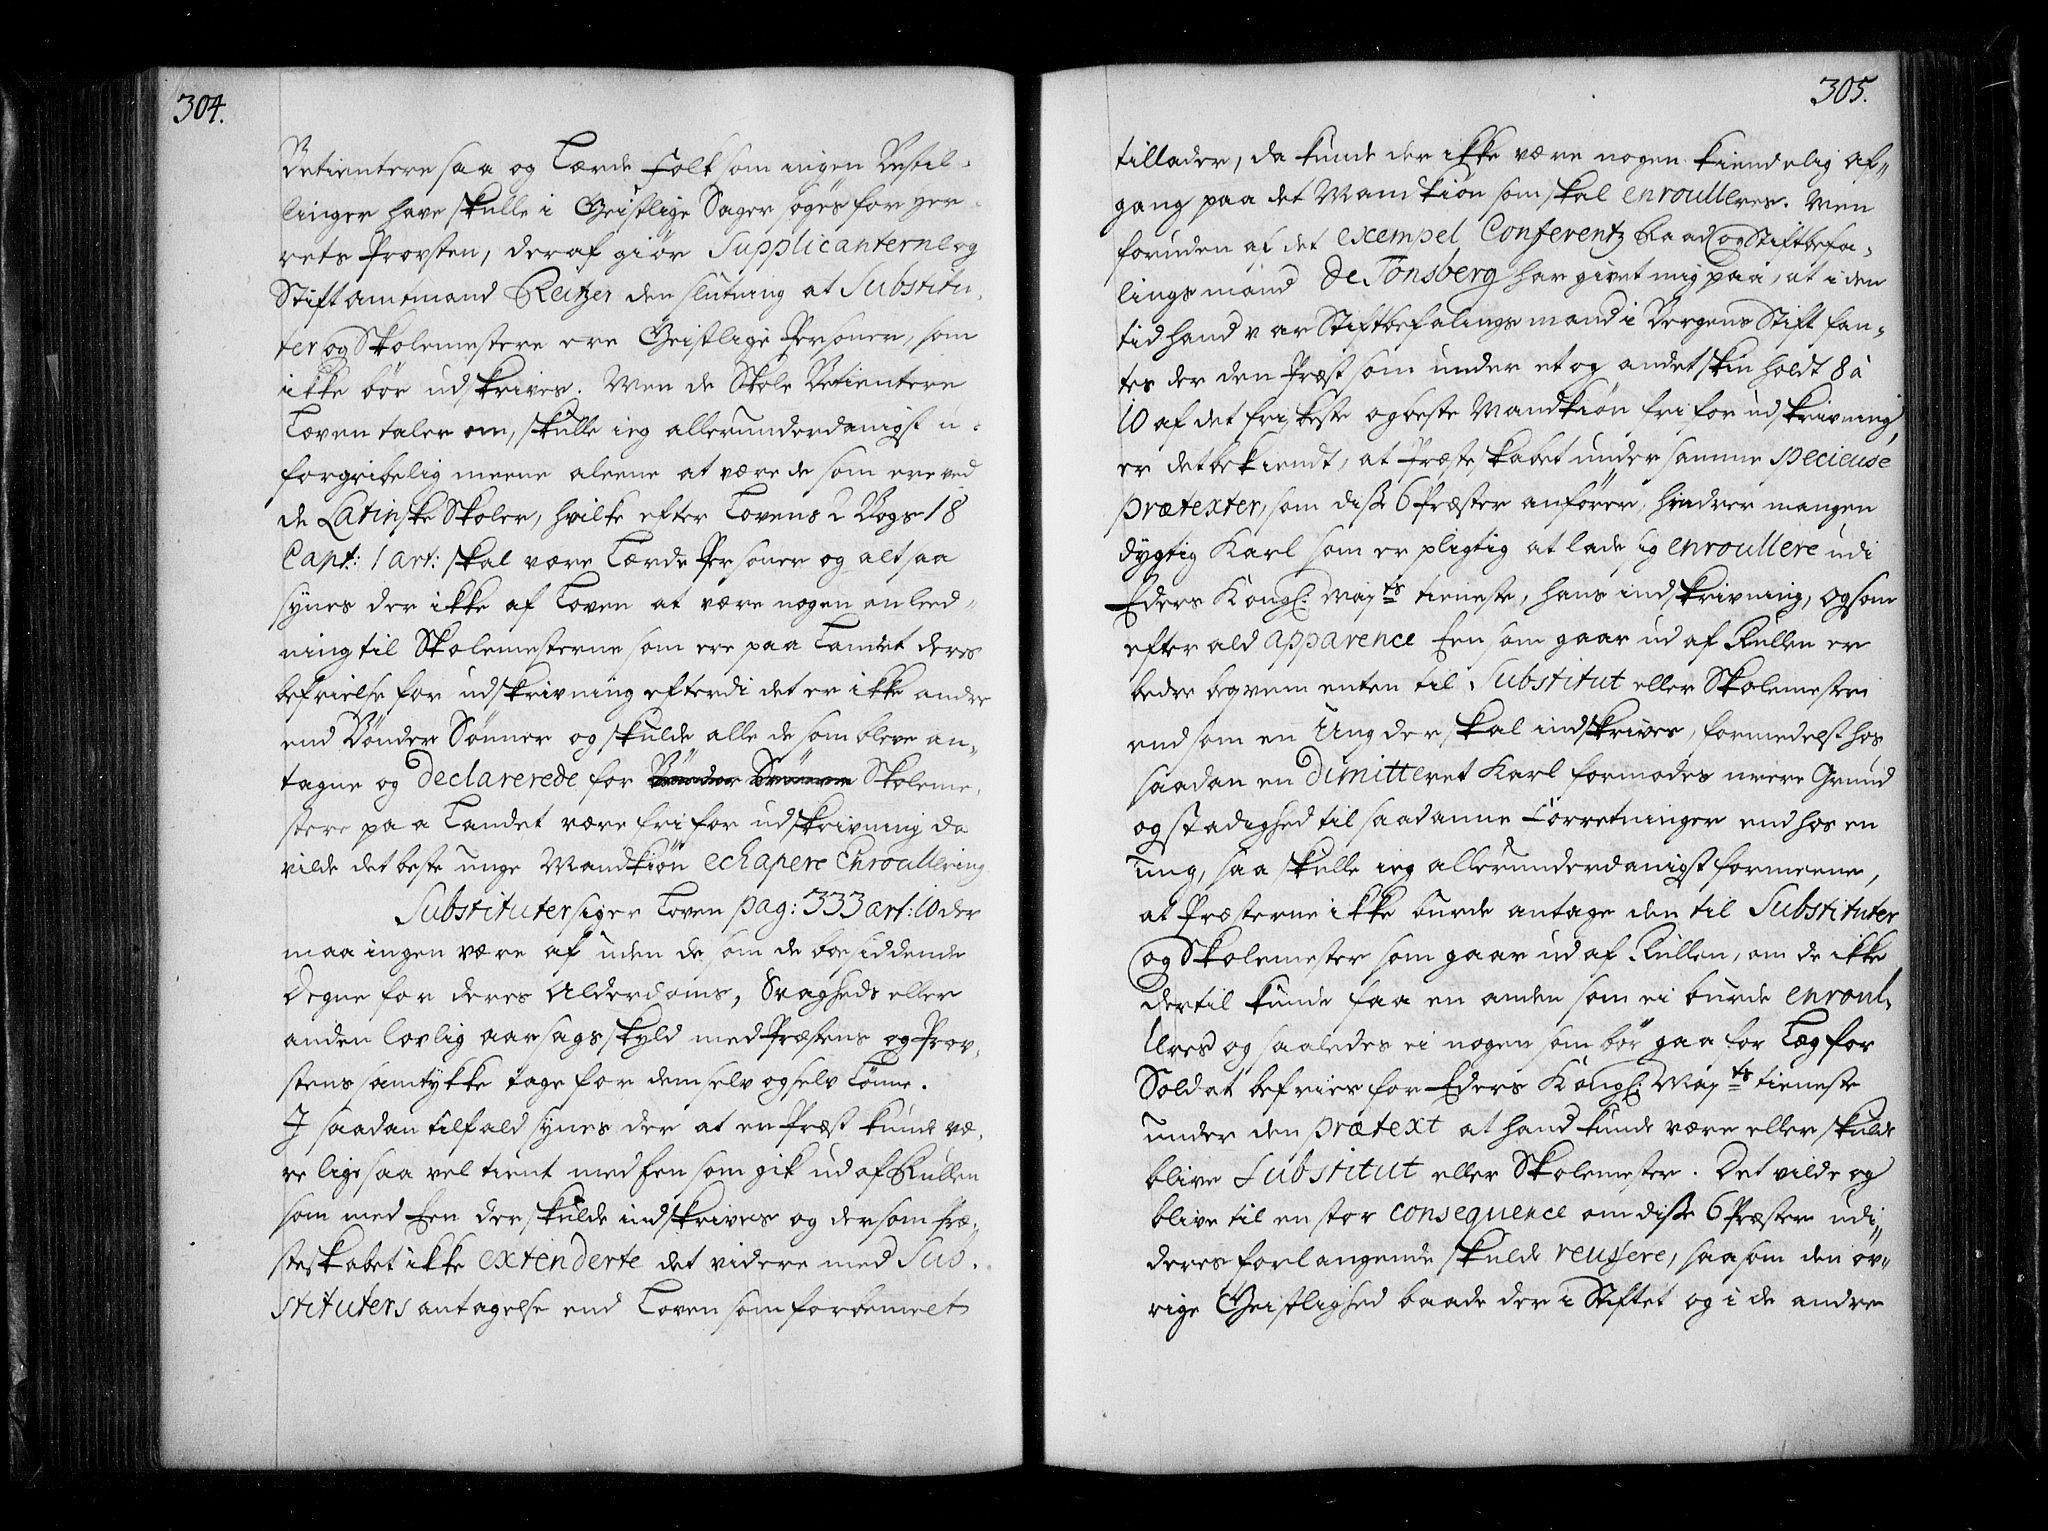 304.
Betientere saa og Lærde Folk som ingen Bestil-
linger have skulle i Geistlige Sager søges for Her-
rets Provsten, deraf giør Supplicanterne og
Stiftamtmand Reitzer den slutning at Substitu-
ter og Skolemestere ere Geistlige Personer, som
ikke bør udskrives. Men de Skole Betientere
Loven taler om, skulle ieg allerunderdanigst u-
forgribelig meene aleene at være de som ere ved
de Latinske Skoler, hvilke efter Lovens 2 Bogs 18
Capt: 1 art: skal være Lærde Personer og altsaa
synes der ikke af Loven at være nogen anleed-
ning til Skolemesterne som ere paa Landet deres
befrielse for udskrivning efterdi det er ikke andre
end Bønder Sønner og skulde alle de som bleve an-
tagne og declarerede for Bønder Sønnern Skoleme-
stere paa Landet være fri for udskrivning da
vilde det beste unge Mandkiøn echapere Enroullering
Substituter siger Loven pag: 333 art: 10 der
maa ingen være af uden de som de boesiddende
Degne for deres Alderdoms, Svagheds eller
anden lovlig aarsags skyld med Præstens og Prov-
stens samtykke tage for dem selv og selv Lønne.
I saadan tilfald synes der at en Præst kunde væ-
re lige saa vel tient med Een som gik ud af Rullen
som med Een der skulde indskrives og dersom Præ-
steskabet ikke extenderte det videre med Sub-
stituters antagelse end Loven som forbemelt
305.
tillader, da kunde der ikke være nogen kiendelig af-
gang paa det Mandkiøn som skal enroulleres. Men
foruden af det exempel Conferentz Raad og Stiftbefa-
lingsmand de Tonsberg har givet mig paa, at i den
tid hand var Stiftbefalingsmand i Bergens Stift fan-
tes der den Præst som under et og andet skin holdt 8 à
10 af det friskeste og beste Mandkiøn fri for udskrivning,
er det bekiendt, at Præsteskabet under samme specieuse
prætexter, som disse 6 Præster anfører, hindrer mangen
dygtig Karl som er pligtig at lade sig enroullere udi
Eders Kongl: Mayts tieneste, hans indskrivning, og som
efter ald apparence Een som gaar ud af Rullen er
bedre beqvem enten til Substitut eller Skolemester
end som en Ung der skal indskrives, formedelst hos
saadan en dimitteret Karl formodes meere Grund
og stadighed til saadanne Forretninger end hos en
ung, saa skulle ieg allerunderdanigst formeene,
at Præsterne ikke burde antage den til Substituter
og Skolemester som gaar ud af Rullen, om de ikke
dertil kunde faa en anden som ei burde enroul-
leres og saaledes ei nogen som bør gaa for Læg for
Soldat befries for Eders Kongl: Mayts tieneste
under den prætext at hand kunde være eller skulde
blive Substitut eller Skolemester. Det vilde og
blive til en stor consequence om disse 6 Præster udi
deres forlangende skulde reussere, saasom den øv-
rige Geistlighed baade der i Stiftet og i de andre